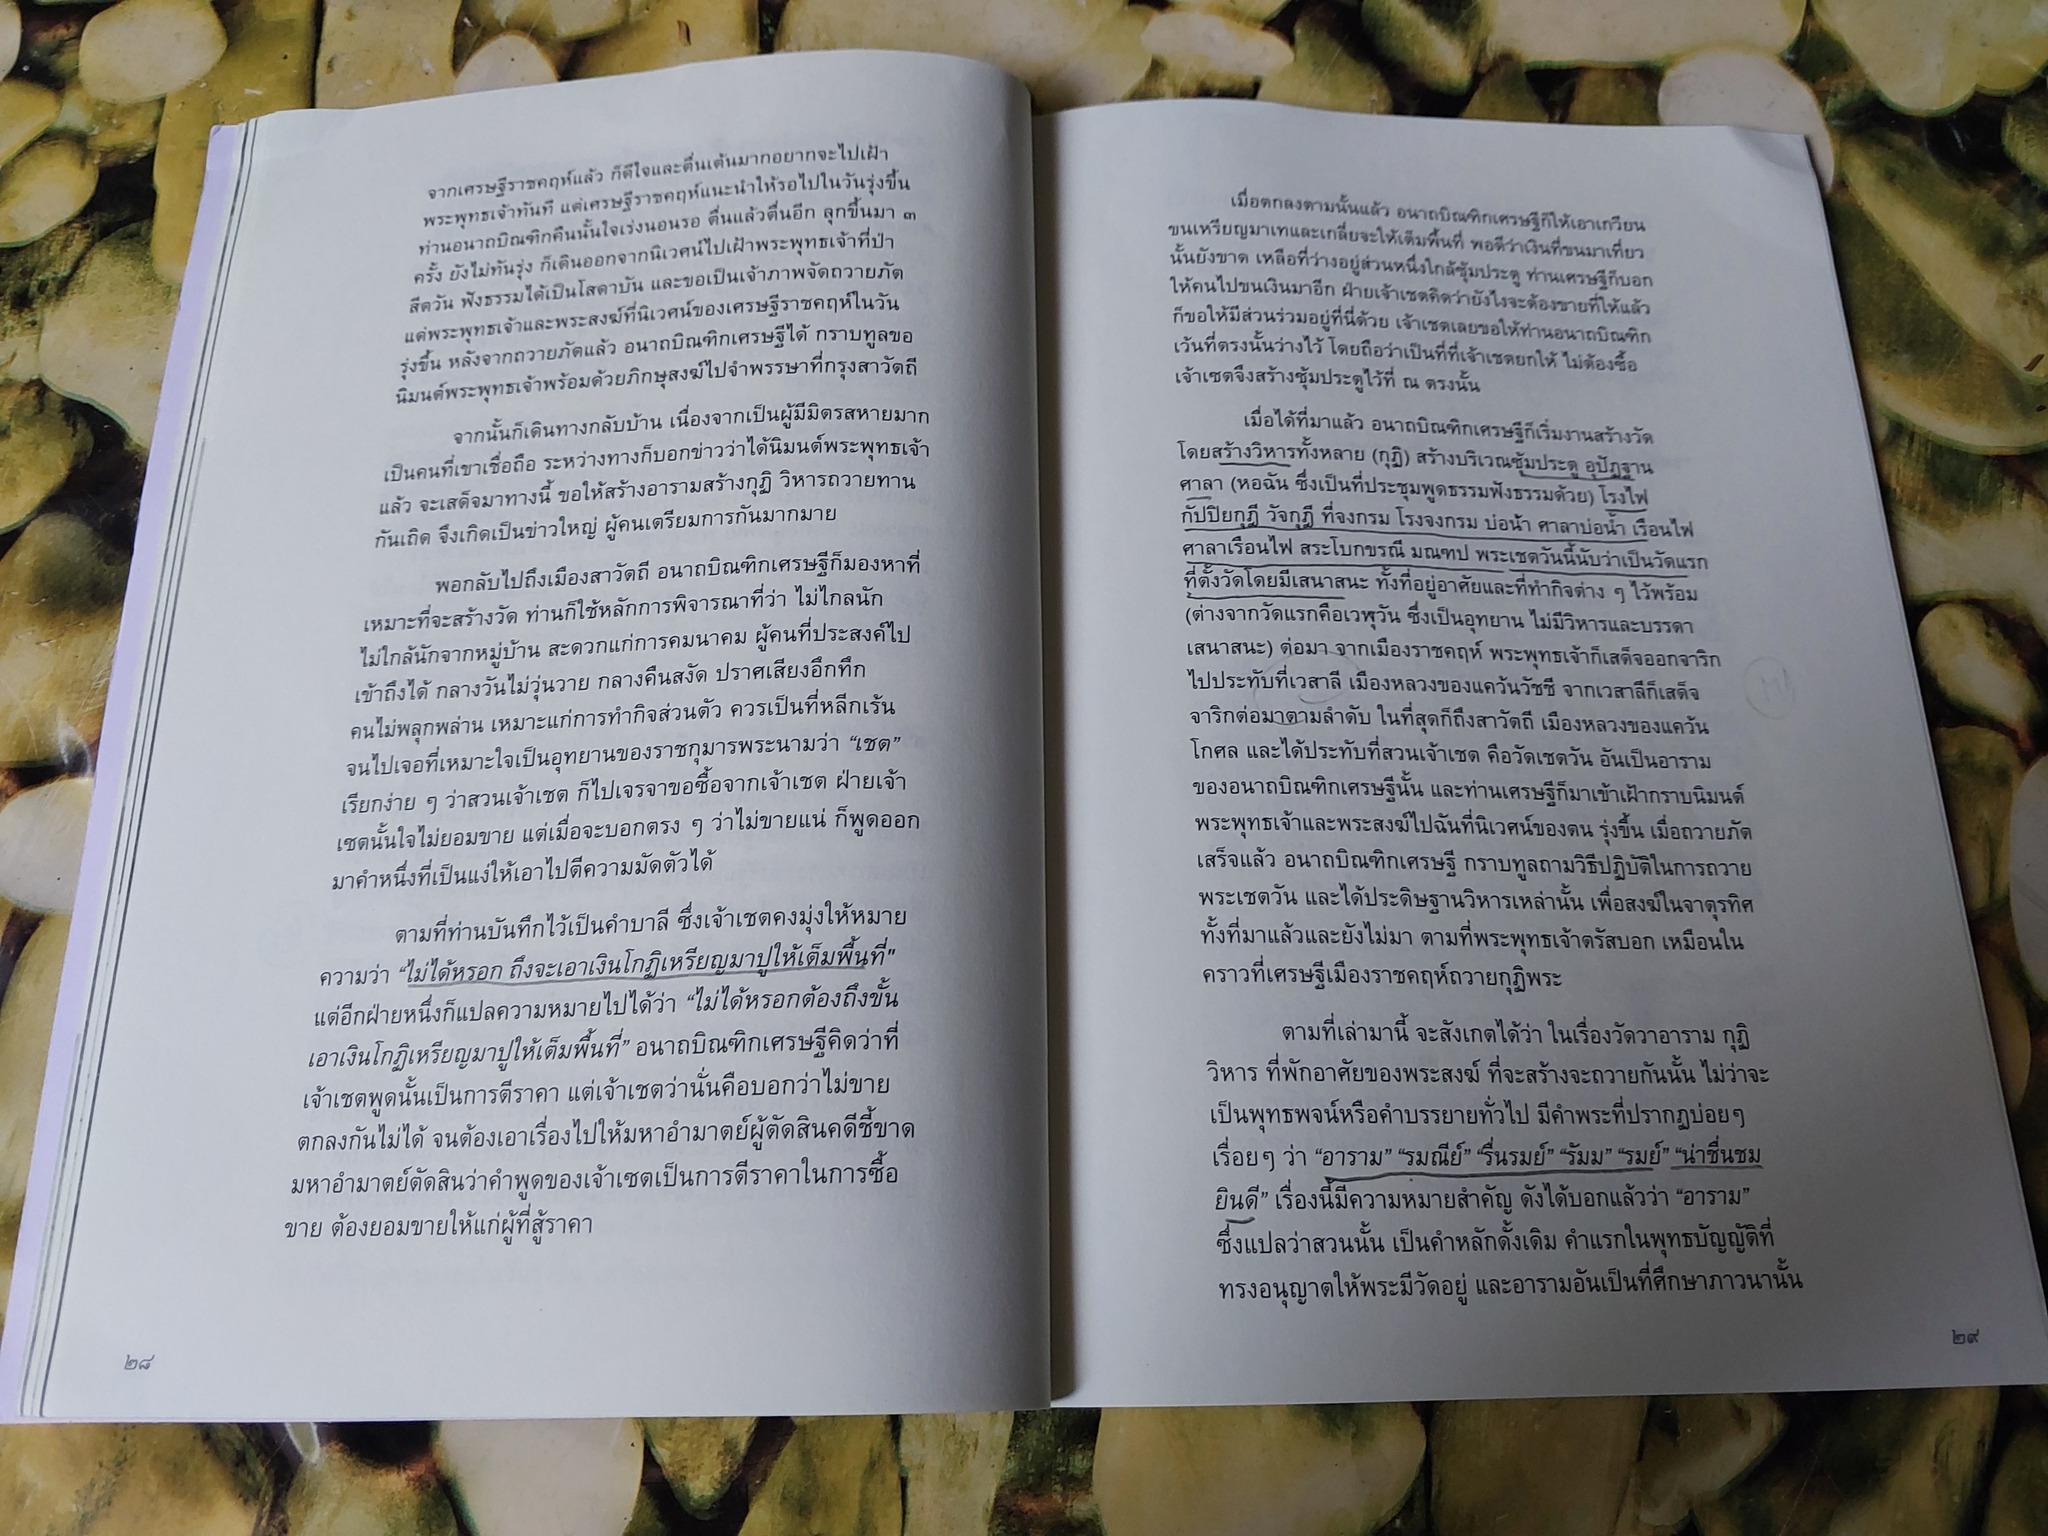 จากเศรษฐีราชคฤห์แล้ว ก็ดีใจและตื่นเต้นมากอยากจะไปเฝ้า
พระพุทธเจ้าทันที แต่เศรษฐีราชคฤห์แนะนำให้รอไปในวันรุ่งขึ้น
ท่านอนาถบิณฑิกคืนนั้นใจเร่งนอนรอ ตื่นแล้วตื่นอีก ลุกขึ้นมา ๓
ครั้ง ยังไม่ทันรุ่ง ก็เดินออกจากนิเวศน์ไปเฝ้าพระพุทธเจ้าที่ป่า
สีตวัน ฟังธรรมได้เป็นโสดาบัน และขอเป็นเจ้าภาพจัดถวายภัต
แด่พระพุทธเจ้าและพระสงฆ์ที่นิเวศน์ของเศรษฐีราชคฤห์ในวัน
รุ่งขึ้น หลังจากถวายภัตแล้ว อนาถบิณฑิกเศรษฐีได้ กราบทูลขอ
นิมนต์พระพุทธเจ้าพร้อมด้วยภิกษุสงฆ์ไปจำพรรษาที่กรุงสาวัตถี
จากนั้นก็เดินทางกลับบ้าน เนื่องจากเป็นผู้มีมิตรสหายมาก
เป็นคนที่เขาเชื่อถือ ระหว่างทางก็บอกข่าวว่าได้นิมนต์พระพุทธเจ้า
แล้ว จะเสด็จมาทางนี้ ขอให้สร้างอารามสร้างกุฏิ วิหารถวายทาน
กันเถิด จึงเกิดเป็นข่าวใหญ่ ผู้คนเตรียมการกันมากมาย
พอกลับไปถึงเมืองสาวัตถี อนาถบิณฑิกเศรษฐีก็มองหาที่
เหมาะที่จะสร้างวัด ท่านก็ใช้หลักการพิจารณาที่ว่า ไม่ไกลนัก
ไม่ใกล้นักจากหมู่บ้าน สะดวกแก่การคมนาคม ผู้คนที่ประสงค์ไป
เข้าถึงได้ กลางวันไม่วุ่นวาย กลางคืนสงัด ปราศเสียงอึกทึก
คนไม่พลุกพล่าน เหมาะแก่การทำกิจส่วนตัว ควรเป็นที่หลีกเร้น
จนไปเจอที่เหมาะใจเป็นอุทยานของราชกุมารพระนามว่า “เชต”
เรียกง่าย ๆ ว่าสวนเจ้าเชต ก็ไปเจรจาขอซื้อจากเจ้าเชต ฝ่ายเจ้า
เชตนั้นใจไม่ยอมขาย แต่เมื่อจะบอกตรง ๆ ว่าไม่ขายแน่ ก็พูดออก
มาคำหนึ่งที่เป็นแง่ให้เอาไปตีความมัดตัวได้
ตามที่ท่านบันทึกไว้เป็นคำบาลี ซึ่งเจ้าเชตคงมุ่งให้หมาย
ความว่า “ไม่ได้หรอก ถึงจะเอาเงินโกฏิเหรียญมาปูให้เต็มพื้นที่”
แต่อีกฝ่ายหนึ่งก็แปลความหมายไปได้ว่า “ไม่ได้หรอกต้องถึงขั้น
เอาเงินโกฏิเหรียญมาปูให้เต็มพื้นที่” อนาถบิณฑิกเศรษฐีคิดว่าที่
เจ้าเชตพูดนั้นเป็นการตีราคา แต่เจ้าเชตว่านั่นคือบอกว่าไม่ขาย
ตกลงกันไม่ได้ จนต้องเอาเรื่องไปให้มหาอำมาตย์ผู้ตัดสินคดีชี้ขาด
มหาอำมาตย์ตัดสินว่าคำพูดของเจ้าเชตเป็นการตีราคาในการซื้อ
ขาย ต้องยอมขายให้แก่ผู้ที่สู้ราคา
๒๘
เมื่อตกลงตามนั้นแล้ว อนาถบิณฑิกเศรษฐีก็ให้เอาเกวียน
ขนเหรียญมาเทและเกลี่ยจะให้เต็มพื้นที่ พอดีว่าเงินที่ขนมาเที่ยว
นั้นยังขาด เหลือที่ว่างอยู่ส่วนหนึ่งใกล้ซุ้มประตู ท่านเศรษฐีก็บอก
ให้คนไปขนเงินมาอีก ฝ่ายเจ้าเชตคิดว่ายังไงจะต้องขายที่ให้แล้ว
ก็ขอให้มีส่วนร่วมอยู่ที่นี่ด้วย เจ้าเชตเลยขอให้ท่านอนาถบิณฑิก
เว้นที่ตรงนั้นว่างไว้ โดยถือว่าเป็นที่ที่เจ้าเชตยกให้ ไม่ต้องซื้อ
เจ้าเชตจึงสร้างซุ้มประตูไว้ที่ ณ ตรงนั้น
เมื่อได้ที่มาแล้ว อนาถบิณฑิกเศรษฐีก็เริ่มงานสร้างวัด
โดยสร้างวิหารทั้งหลาย (กุฏิ) สร้างบริเวณซุ้มประตู อุปัฏฐาน
ศาลา (หอฉัน ซึ่งเป็นที่ประชุมพูดธรรมฟังธรรมด้วย) โรงไฟ
กัปปิยกุฎี วัจกุฎี ที่จงกรม โรงจงกรม บ่อน้ำ ศาลาบ่อน้ำ เรือนไฟ
ศาลาเรือนไฟ สระโบกขรณี มณฑป พระเชตวันนี้นับว่าเป็นวัดแรก
ที่ตั้งวัดโดยมีเสนาสนะ ทั้งที่อยู่อาศัยและที่ทำกิจต่าง ๆ ไว้พร้อม
(ต่างจากวัดแรกคือเวฬุวัน ซึ่งเป็นอุทยาน ไม่มีวิหารและบรรดา
เสนาสนะ) ต่อมา จากเมืองราชคฤห์ พระพุทธเจ้าก็เสด็จออกจาริก
ไปประทับที่เวสาลี เมืองหลวงของแคว้นวัชชี จากเวสาลีก็เสด็จ
จาริกต่อมาตามลำดับ ในที่สุดก็ถึงสาวัตถี เมืองหลวงของแคว้น
โกศล และได้ประทับที่สวนเจ้าเชต คือวัดเชตวัน อันเป็นอาราม
ของอนาถบิณฑิกเศรษฐีนั้น และท่านเศรษฐีก็มาเข้าเฝ้ากราบนิมนต์
พระพุทธเจ้าและพระสงฆ์ไปฉันที่นิเวศน์ของตน รุ่งขึ้น เมื่อถวายภัต
เสร็จแล้ว อนาถบิณฑิกเศรษฐี กราบทูลถามวิธีปฏิบัติในการถวาย
พระเชตวัน และได้ประดิษฐานวิหารเหล่านั้น เพื่อสงฆ์ในจาตุรทิศ
ทั้งที่มาแล้วและยังไม่มา ตามที่พระพุทธเจ้าตรัสบอก เหมือนใน
คราวที่เศรษฐีเมืองราชคฤห์ถวายกุฏิพระ
ตามที่เล่ามานี้ จะสังเกตได้ว่า ในเรื่องวัดวาอาราม กุฏิ
วิหาร ที่พักอาศัยของพระสงฆ์ ที่จะสร้างจะถวายกันนั้น ไม่ว่าจะ
เป็นพุทธพจน์หรือคำบรรยายทั่วไป มีคำพระที่ปรากฏบ่อยๆ
เรื่อยๆ ว่า “อาราม” “รมณีย์” “รื่นรมย์” “รัมม” “รมย์” “น่าชื่นชม
ยินดี” เรื่องนี้มีความหมายสำคัญ ดังได้บอกแล้วว่า “อาราม”
ซึ่งแปลว่าสวนนั้น เป็นคำหลักดั้งเดิม คำแรกในพุทธบัญญัติที่
ทรงอนุญาตให้พระมีวัดอยู่ และอารามอันเป็นที่ศึกษาภาวนานั้น
๒๙